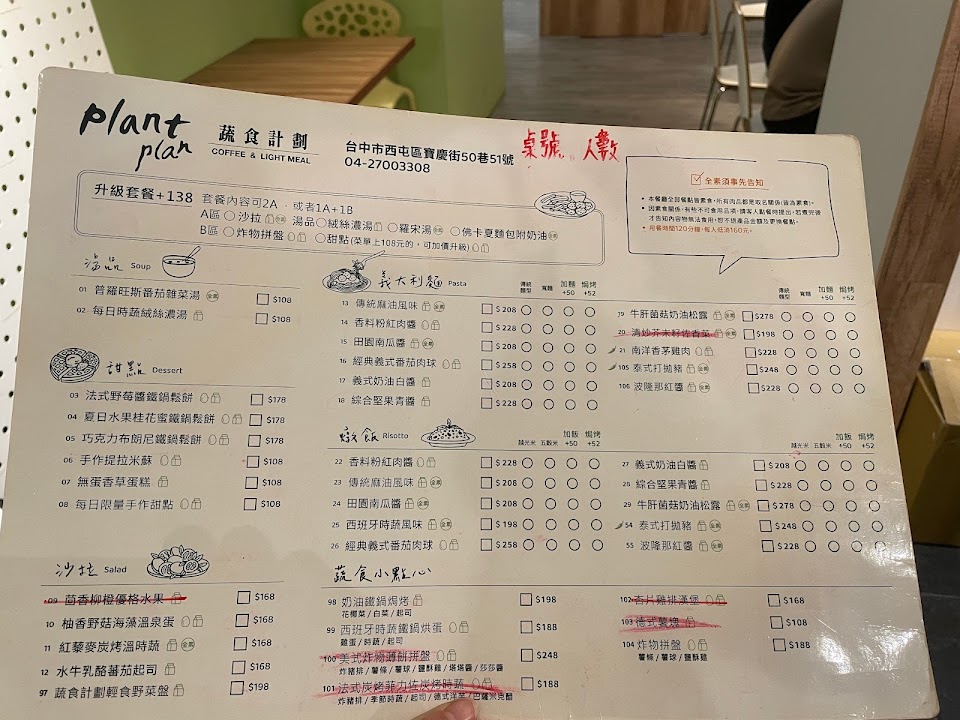 plant plan
蔬食計劃
COFFEE & LIGHT MEAL
台中市西屯區寶慶街50巷51號
04-27003308
桌號 人數
全素須事先告知
• 本餐廳全部餐點皆素食,所有肉品都是取名關係(皆為素食)。
• 用餐時間120分鐘,每人低消160元。
升級套餐+138 套餐內容可2A,或者1A+1B
A區 沙拉 全素 湯品 絨絲濃湯 羅宋湯 全素 佛卡夏麵包附奶油 全素
B區 炸物拼盤 甜點(菜單上108元的,可加價升級)
湯品 Soup
01 普羅旺斯番茄雜菜湯 全素 $108
02 每日時蔬絨絲濃湯 $108
甜點 Dessert
03 法式野莓醬鐵鍋鬆餅 $178
04 夏日水果桂花蜜鐵鍋鬆餅 $178
05 巧克力布朗尼鐵鍋鬆餅 $178
06 手作提拉米蘇 $108
07 無蛋香草蛋糕 $108
08 每日限量手作甜點 $108
沙拉 Salad
09 茴香柳橙優格水果 $168
10 柚香野菇海藻溫泉蛋 $168
11 紅藜麥炭烤溫時蔬 全素 $168
12 水牛乳酪蕃茄起司 $168
97 蔬食計劃輕食野菜盤 $198
義大利麵 Pasta
傳統麵型 寬麵 加麵+50 焗烤+52
13 傳統麻油風味 全素 $208
14 香料粉紅肉醬 $228
15 田園南瓜醬 全素 $208
16 經典義式番茄肉球 $258
17 義式奶油白醬 $208
18 綜合堅果青醬 $228
傳統麵型 寬麵 加麵+50 焗烤+52
19 牛肝菌菇奶油松露 全素 $278
20 清炒芥末籽佐香菜 全素 $198
21 南洋香茅雞肉 $228
105 泰式打拋豬 全素 $248
106 波隆那紅醬 全素 $228
燉飯 Risotto
越光米 五穀米 加飯+50 焗烤+52
22 香料粉紅肉醬 $228
23 傳統麻油風味 全素 $208
24 田園南瓜醬 全素 $208
25 西班牙時蔬風味 全素 $198
26 經典義式番茄肉球 $258
越光米 五穀米 加飯+50 焗烤+52
27 義式奶油白醬 $208
28 綜合堅果青醬 $228
29 牛肝菌菇奶油松露 全素 $278
54 泰式打拋豬 全素 $248
55 波隆那紅醬 全素 $228
蔬食小點心
98 奶油鐵鍋焗烤 $198
花椰菜/白菜/起司
99 西班牙時蔬鐵鍋烘蛋 $188
雞蛋/時蔬/起司
100 美式炸物薄餅拼盤 $248
炸豬排/薯條/薯球/鹽酥雞/塔塔醬/莎莎醬
101 法式炭烤菲力佐炭烤時蔬 $188
炸豬排/季節時蔬/起司/德式洋芋/巴薩米克醋
102 杏片雞排漢堡 $168
103 德式薯塊 $108
104 炸物拼盤 $188
薯條/薯球/鹽酥雞